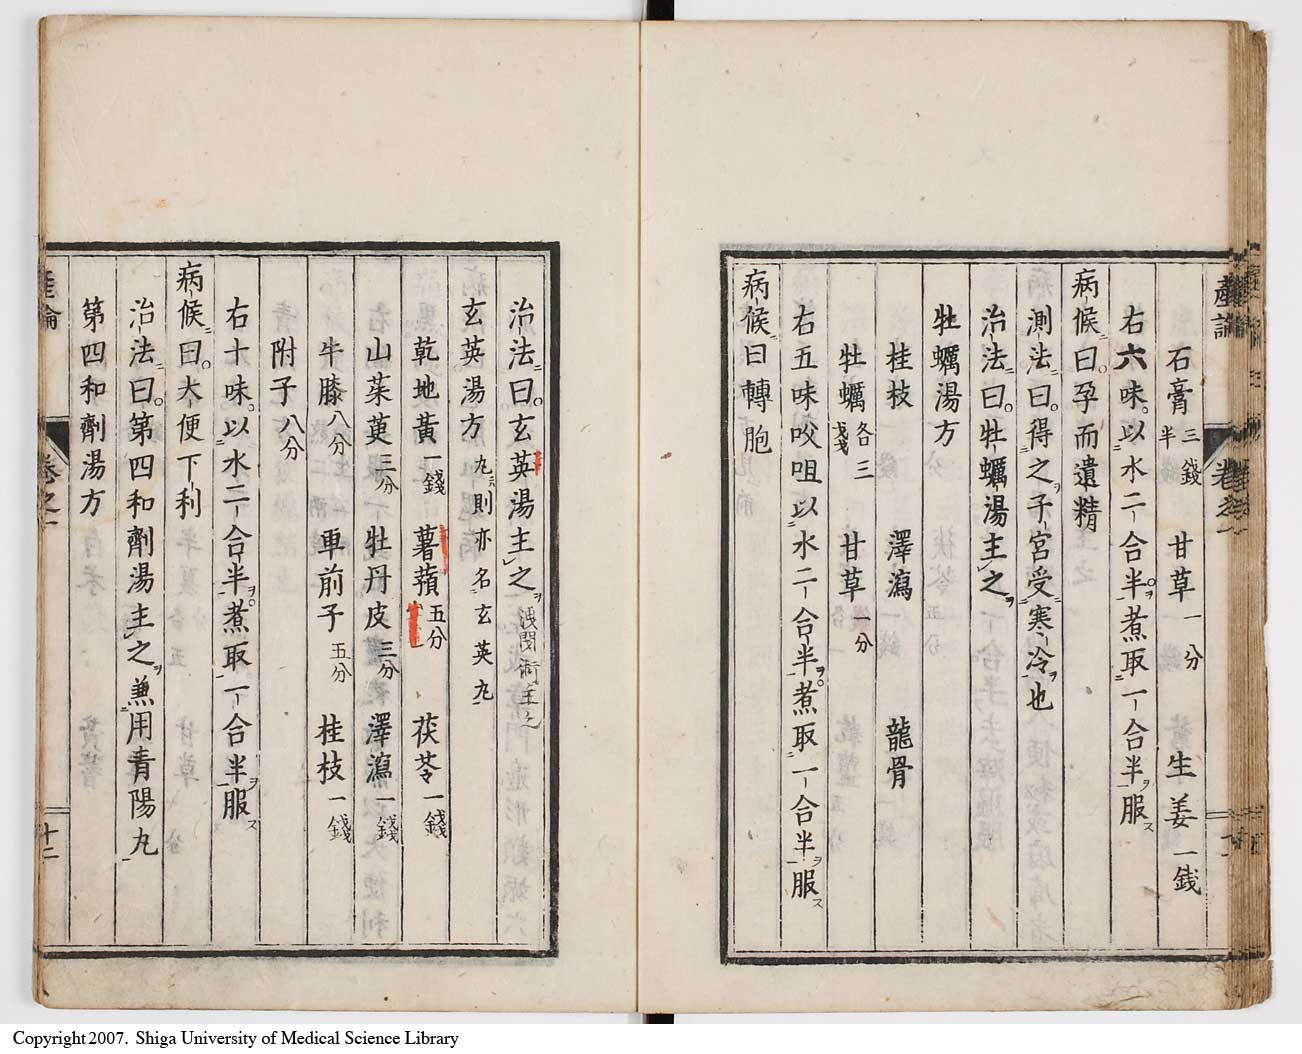 産論
卷之一
石膏三錢半　甘草一分　生姜一錢
右六味。以水二合半。煮取一合半服
病候曰。孕而遺精
測法曰。得之子宮受寒冷也
治法曰。牡蠣湯主之
牡蠣湯方
桂枝　澤瀉　龍骨
牡蠣各三戔　甘草一分
右五味㕮咀以水二合半。煮取一合半服
病候曰轉胞
治法曰。玄英湯主之
玄英湯方 九則亦名玄英丸
乾地黃一錢　薯蕷五分　茯苓一錢
山茱萸三分　牡丹皮三分　澤瀉一錢
牛膝八分　車前子五分　桂枝一錢
附子八分
右十味。以水二合半。煮取一合半服
病候曰。大便下利
治法曰。第四和劑湯主之兼用青陽丸
第四和劑湯方
産論
卷之一
十二
Copyright 2007. Shiga University of Medical Science Library